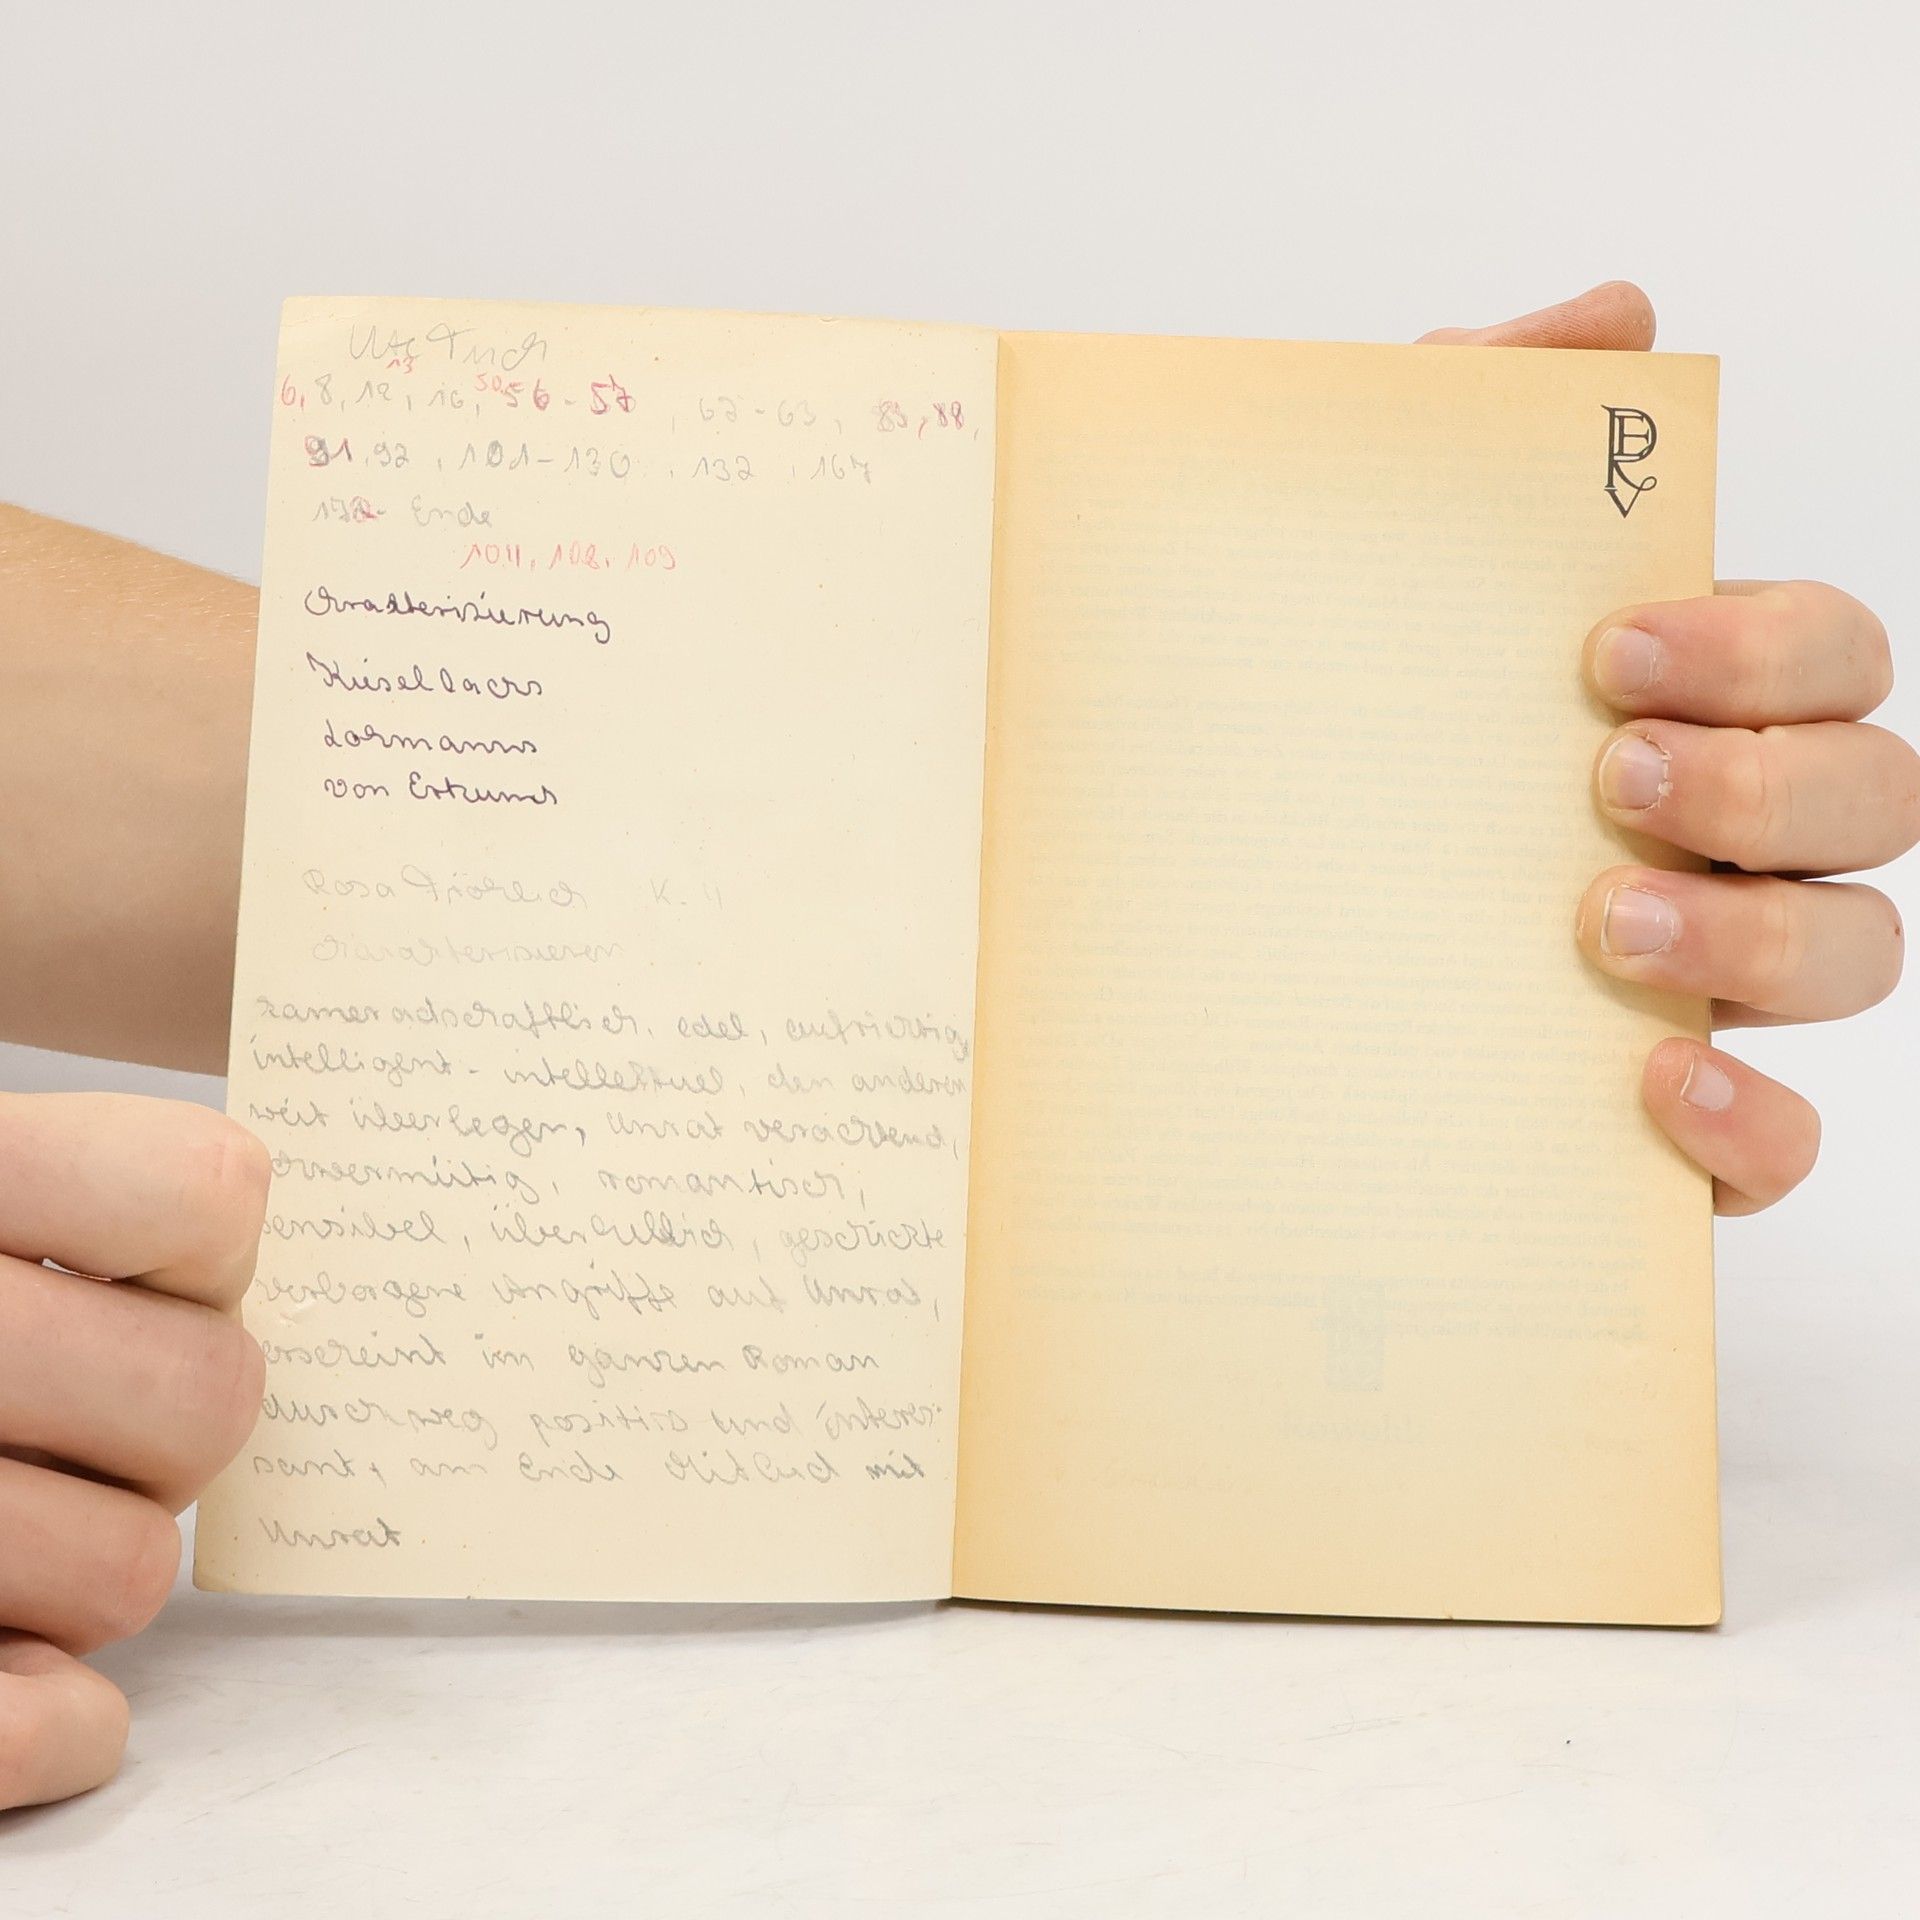 Ute
13 50
6, 8, 12, 16, 56 - 57, 62 - 63, 83, 88,
91, 92, 101 - 130, 132, 167
172 - Ende
104, 108, 109
Charakterisierung
Kieselbachs
Lohmanns
von Ertzums
Rosa Fröhlich K. 4
Charakterisieren
kameradschaftlich, edel, aufrichtig,
intelligent - intellektuel, den anderen
weit überlegen, Unrat verachtend,
schwermütig, romantisch,
sensibel, überheblich, geschickte
verborgene Angriffe auf Unrat,
erscheint im ganzen Roman
durchweg positiv und interes-
sant, am Ende Mitleid mit
Unrat